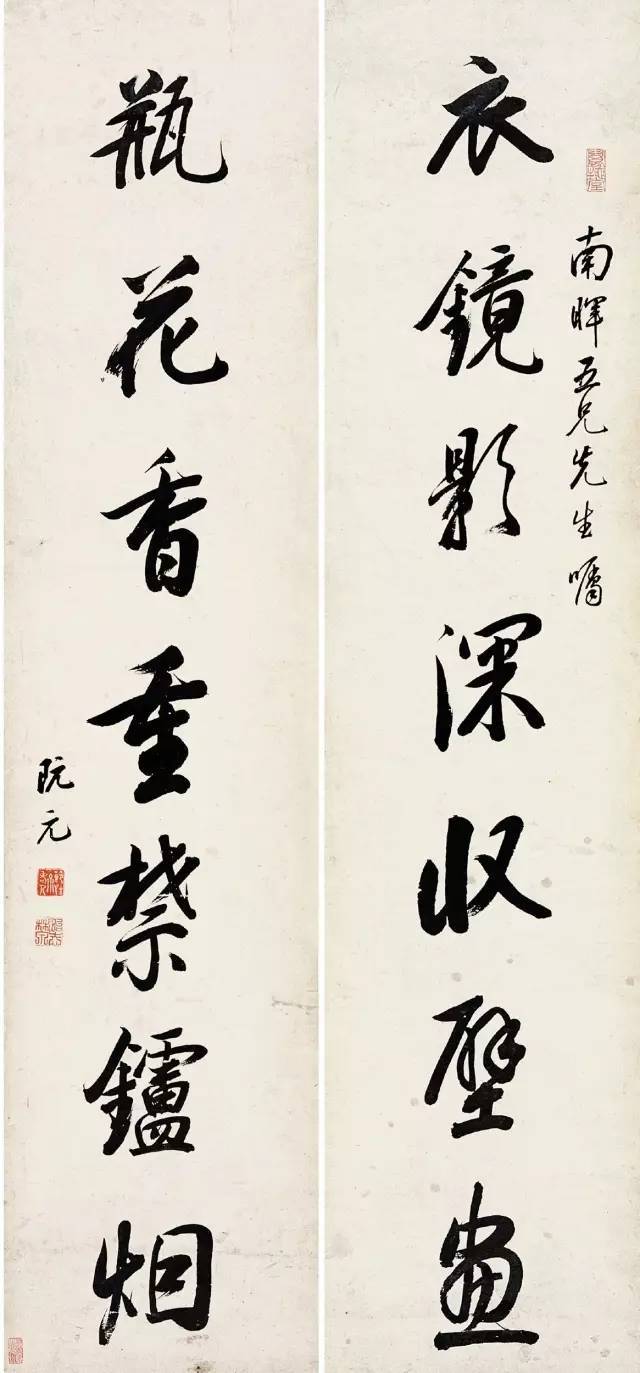 南暉五兄先生囑
衣鏡影深收壁畫
瓶花香重禁鑪烟
阮元